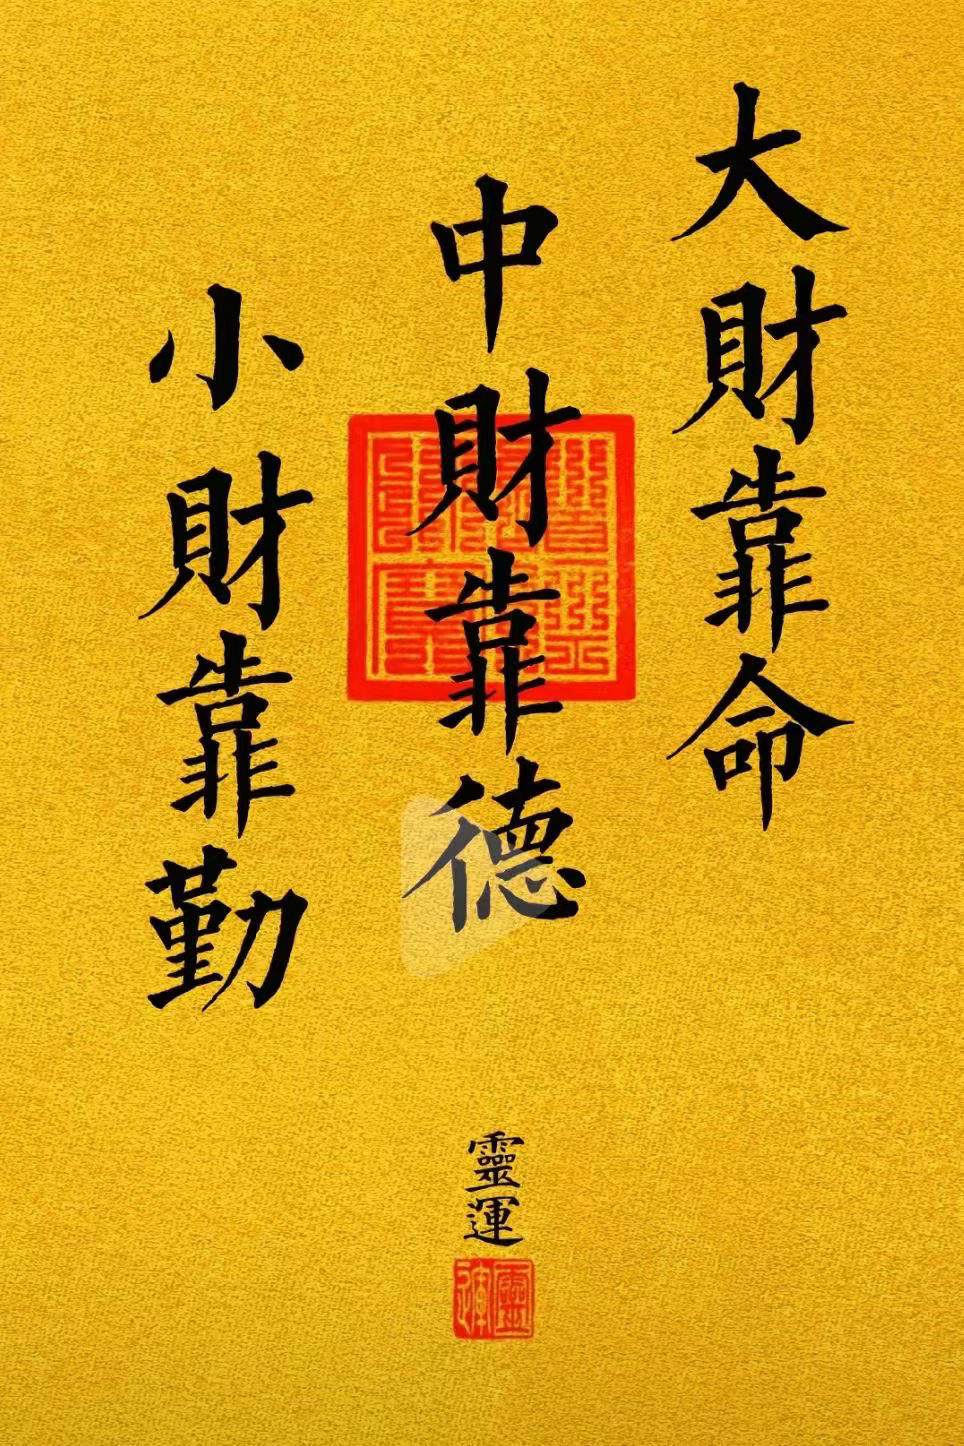 大財靠命
中財靠德
小財靠勤
靈運
靈運